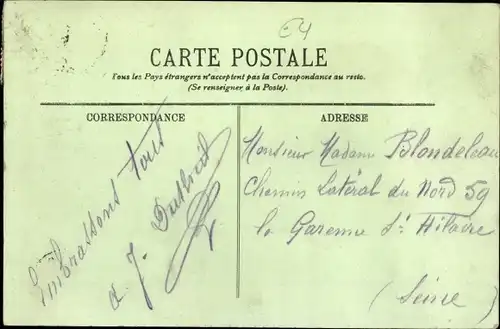 E4
CARTE POSTALE
Tous les Pays étrangers n'acceptent pas la Correspondance au recto.
(Se renseigner à la Poste).
CORRESPONDANCE
Embrassons tout
a J.
ADRESSE
Monsieur Madame Blondeleau
Chemin Latéral du Nord 59
la Garenne St Hilaire
(Seine)